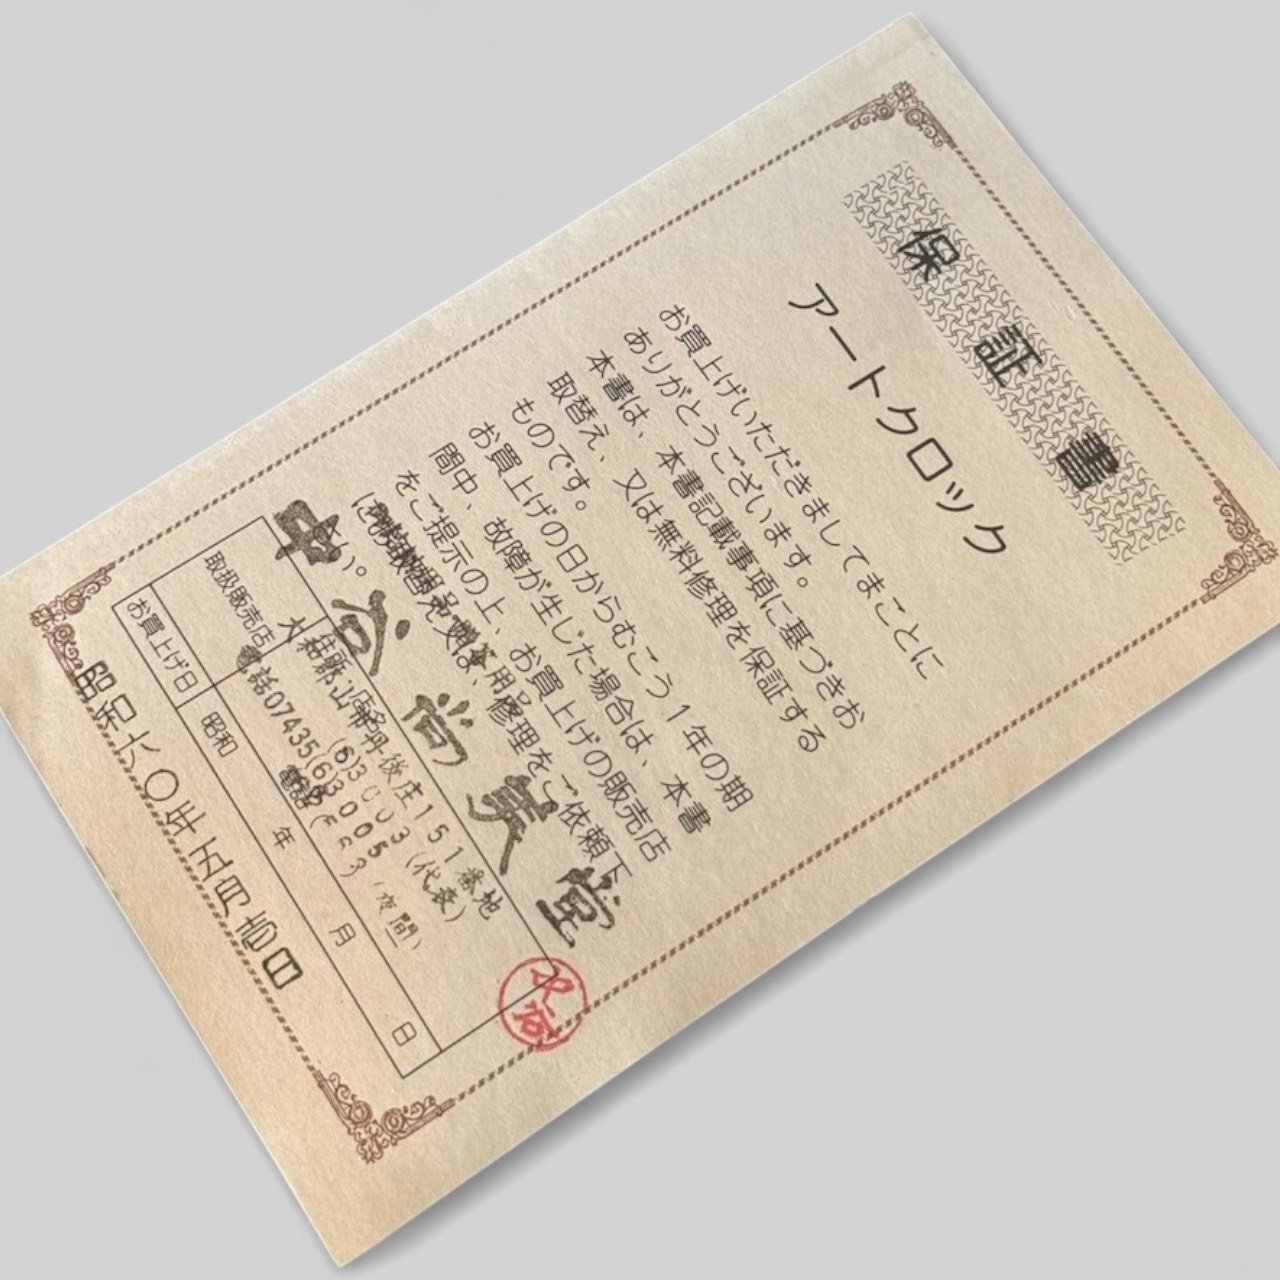 保証書
アートクロック
お買上げいただきましてまことに
ありがとうございます。
本書は、本書記載事項に基づきお
取替え、又は無料修理を保証する
ものです。
お買上げの日からむこう1年の期
間中、故障が生じた場合は、本書
をご提示の上、お買上げの販売店
にお取替え又は、修理をご依頼下
さい。
堂
取扱販売店
住所・店名
山
丹後庄151番地
(6)3003(代表)
電話07435(6)3005(夜間)
お買上げ日
昭和 年 月 日
昭和六〇年五月壱日